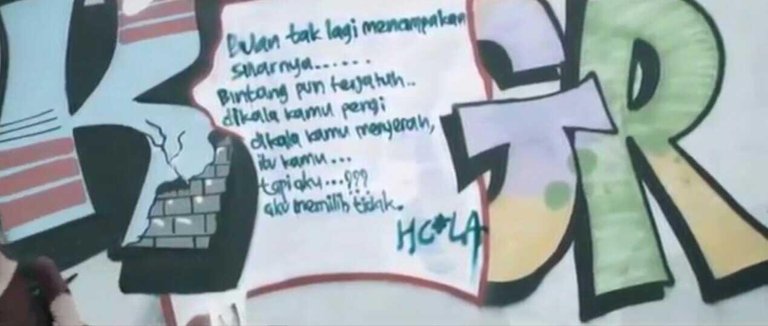 Bulan tak lagi menampakan
sinarnya......
Bintang pun terjatuh..
dikala kamu pergi
dikala kamu menyerah,
itu kamu...
tapi aku...???
aku memilih tidak.
HC*LA